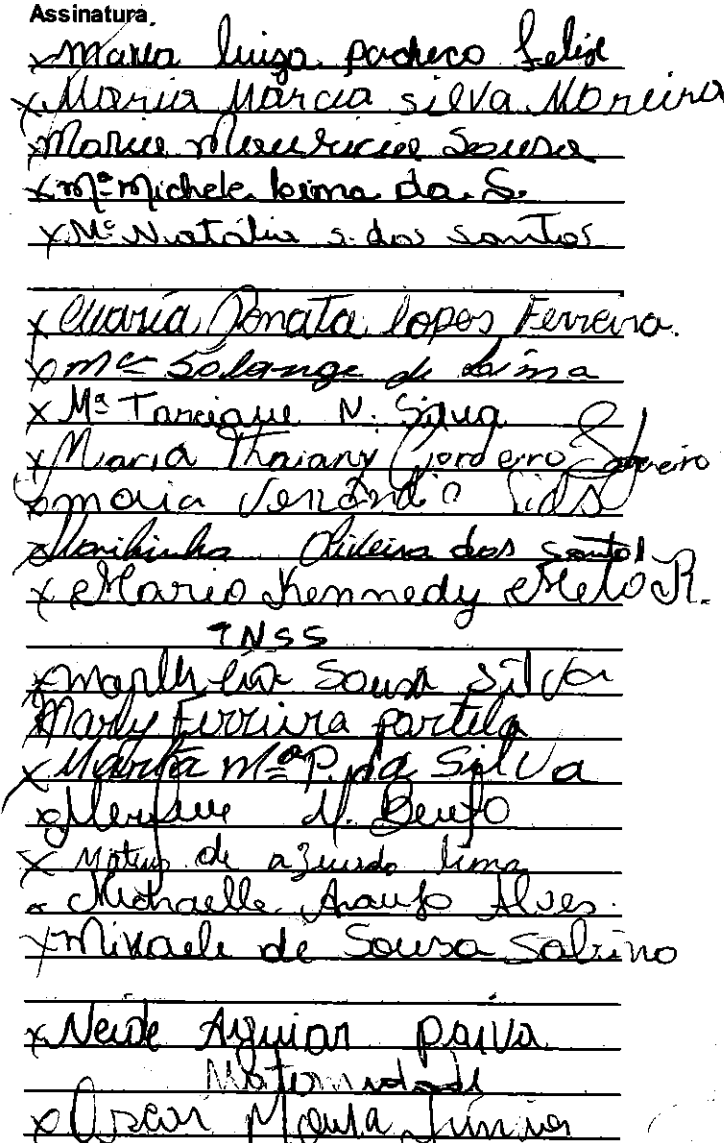 Assinatura
x Maria luiza pacheco felix
x Maria Márcia silva Moreira
Maria Mauricia Sousa
x Mª Michele Lima da S.
x Mª Natália s. dos santos
x Maria Renata lopes Ferreira.
x Mª Solange de Lima
x Mª Tarciane N. Silva
x Maria Thaiany Cordeiro
x maria
Marihinha Oliveira dos santos
x Mario Kennedy Melo R.
INSS
x Sousa Silva
Marly Ferreira portela
x Marta Mª P. da Silva
x
x Mateus de azevedo lima
x Michaelle Araujo Alves.
x Mikaele de Sousa Sabino
x Neide Aguiar paiva
Maternidade
x Oscar Moura Júnior